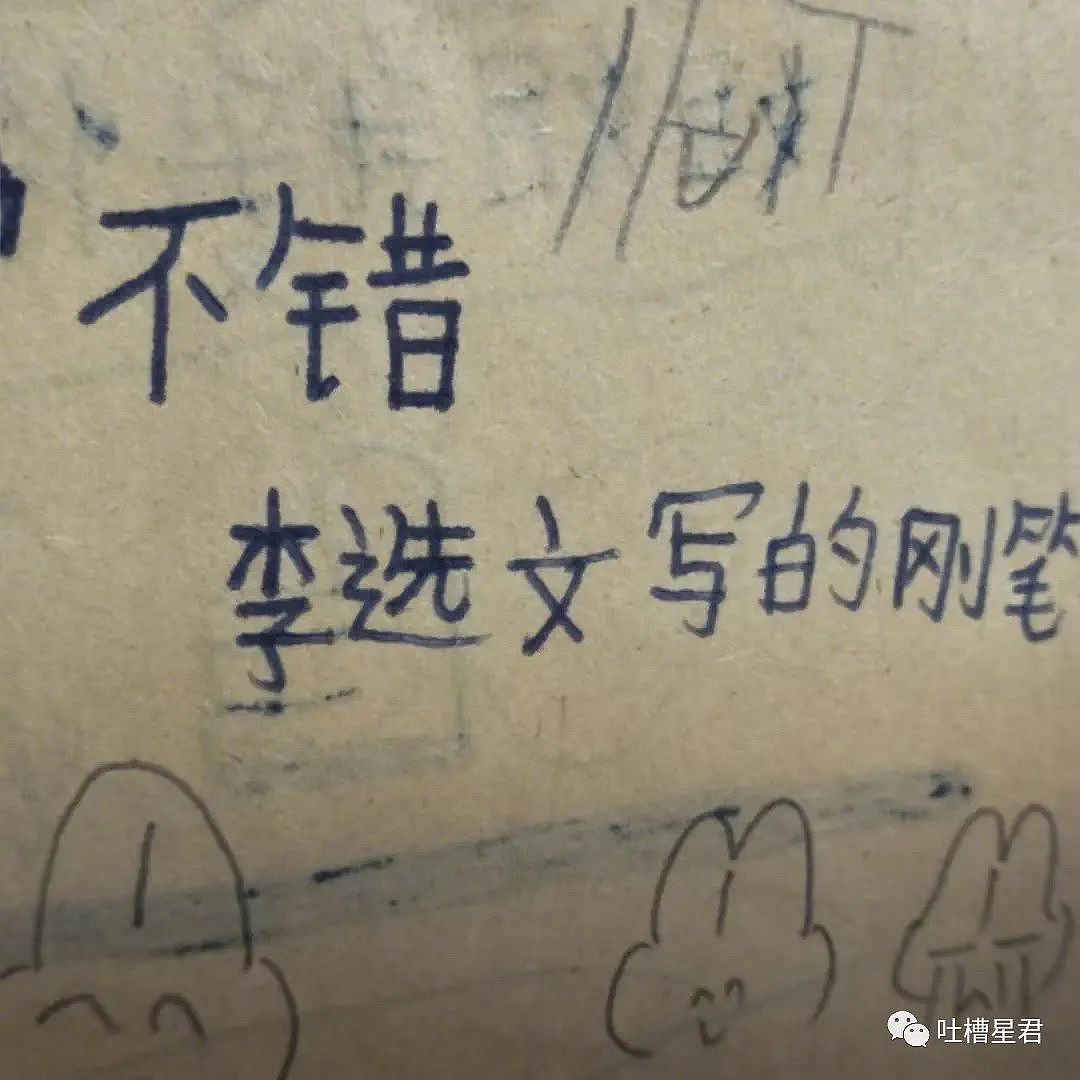 不错
李选文写的刚笔
吐槽星君